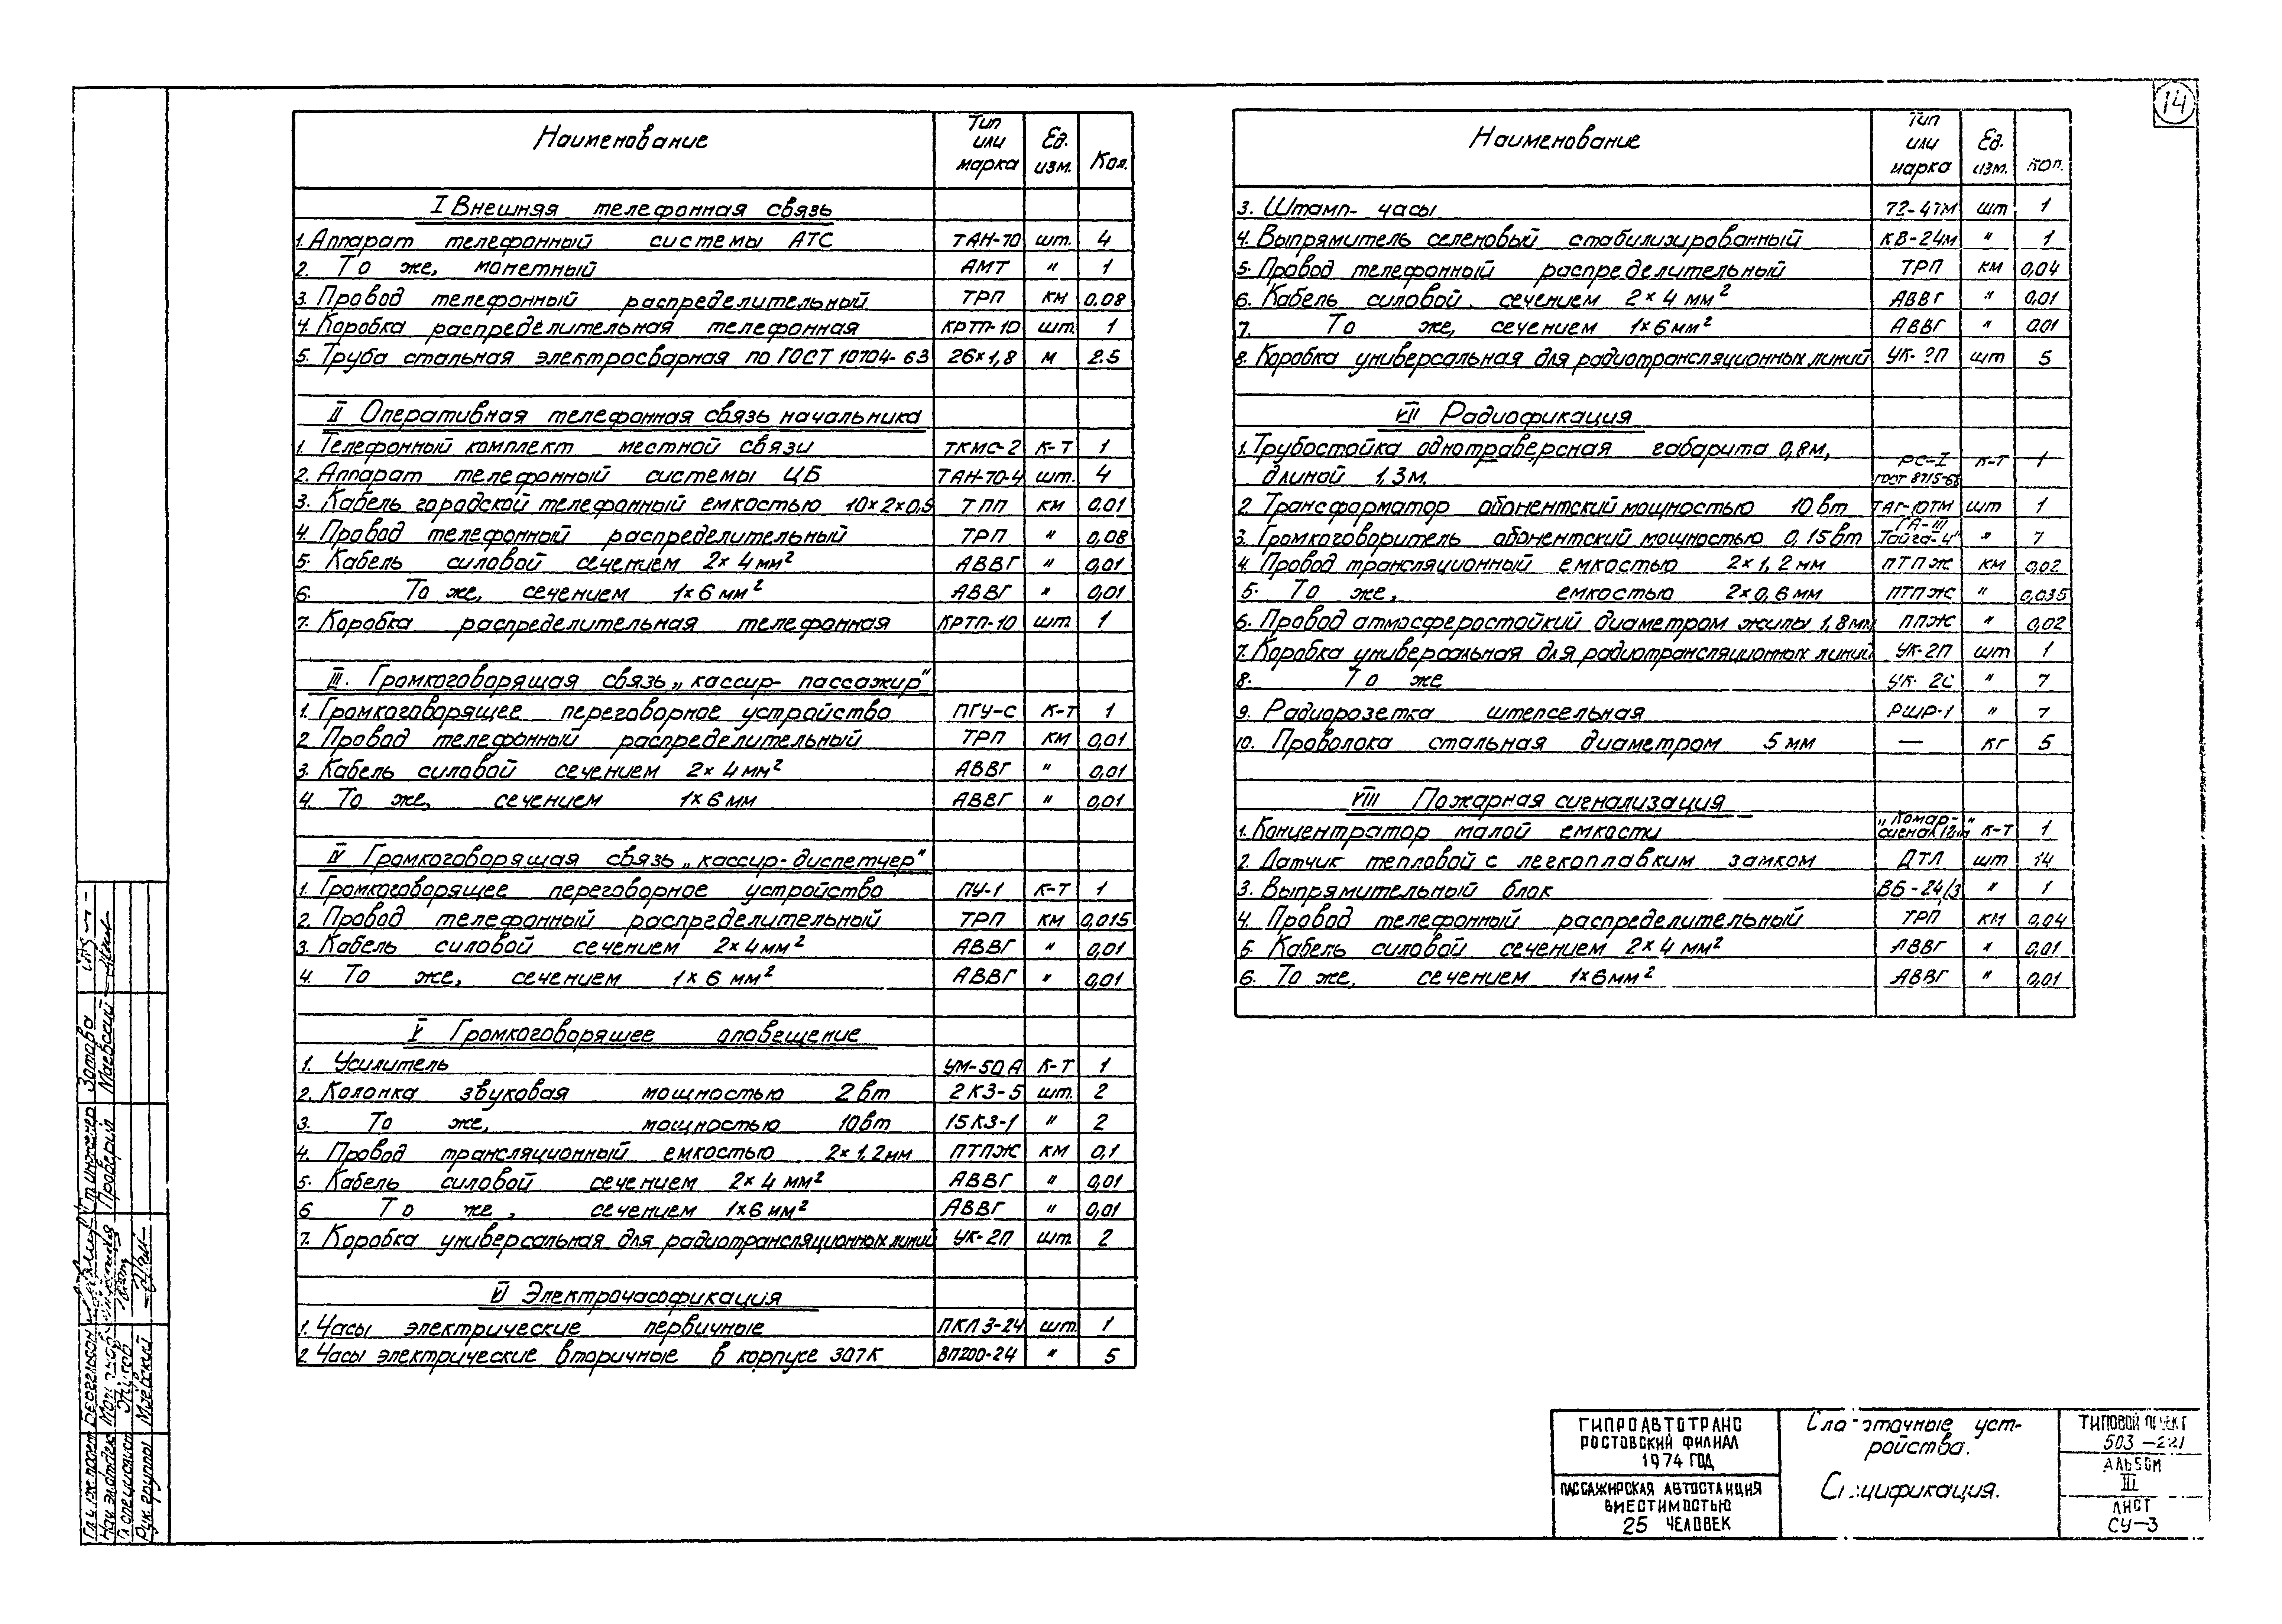 14
Наименование Тип или марка Ед. изм. Кол.
I Внешняя телефонная связь
1. Аппарат телефонный системы АТС ТАН-70 шт. 4
2. То же, монетный АМТ " 1
3. Провод телефонный распределительный ТРП км 0.08
4. Коробка распределительная телефонная КРТП-10 шт. 1
5. Труба стальная электросварная по ГОСТ 10704-63 26×1,8 м 2.5
II Оперативная телефонная связь начальника
1. Телефонный комплект местной связи ТКМС-2 к-т 1
2. Аппарат телефонный системы ЦБ ТАН-70-4 шт. 4
3. Кабель городской телефонный емкостью 10×2×0,5 ТПП км 0.01
4. Провод телефонный распределительный ТРП " 0,08
5. Кабель силовой сечением 2×4мм² АВВГ " 0,01
6. То же, сечением 1×6мм² АВВГ " 0,01
7. Коробка распределительная телефонная КРТП-10 шт. 1
III. Громкоговорящая связь „кассир-пассажир"
1. Громкоговорящее переговорное устройство ПГУ-С к-т 1
2 Провод телефонный распределительный ТРП км 0,01
3. Кабель силовой сечением 2×4мм² АВВГ " 0,01
4. То же, сечением 1×6мм АВВГ " 0,01
IV Громкоговорящая связь „кассир-диспетчер"
1. Громкоговорящее переговорное устройство ПУ-1 к-т 1
2. Провод телефонный распределительный ТРП км 0,015
3. Кабель силовой сечением 2×4мм² АВВГ " 0,01
4. То же, сечением 1×6 мм² АВВГ " 0,01
V Громкоговорящее оповещение
1. Усилитель УМ-50А к-т 1
2. Колонка звуковая мощностью 2вт 2КЗ-5 шт. 2
3. То же, мощностью 10вт 15КЗ-1 " 2
4. Провод трансляционный емкостью 2×1,2мм ПТПЖ км 0,1
5. Кабель силовой сечением 2×4мм² АВВГ " 0,01
6 То же, сечением 1×6мм² АВВГ " 0,01
7. Коробка универсальная для радиотрансляционных линий УК-2П шт. 2
VI Электрочасофикация
1. Часы электрические первичные ПКЛ3-24 шт. 1
2. Часы электрические вторичные в корпусе 307К ВП200-24 " 5
Наименование Тип или марка Ед. изм. Кол.
3. Штамп-часы 72-47М шт 1
4. Выпрямитель селеновый стабилизированный КВ-24м " 1
5. Провод телефонный распределительный ТРП км 0,04
6. Кабель силовой сечением 2×4мм² АВВГ " 0,01
7. То же, сечением 1×6мм² АВВГ " 0.01
8. Коробка универсальная для радиотрансляционных линий УК-2П шт 5
VII Радиофикация
1. Трубостойка однотраверсная габарита 0,8м,
длиной 1,3м. РС-I ГОСТ 8715-68 к-т 1
2. Трансформатор абонентский мощностью 10вт ТАГ-10ТМ шт 1
3. Громкоговоритель абонентский мощностью 0,15вт ГА-III „Тайга-4" " 7
4 Провод трансляционный емкостью 2×1,2мм ПТПЖ км 0,02
5. То же, емкостью 2×0,6мм ПТПЖ " 0,035
6. Провод атмосферостойкий диаметром жилы 1,8мм ППЖ " 0,02
7. Коробка универсальная для радиотрансляционных линий УК-2П шт 1
8. То же УК-2С " 7
9. Радиорозетка штепсельная РШР-1 " 7
10. Проволока стальная диаметром 5мм — кг 5
VIII Пожарная сигнализация
1. Концентратор малой емкости „Комар-сигнал 12м" к-т 1
2. Датчик тепловой с легкоплавким замком ДТЛ шт 14
3. Выпрямительный блок ВБ-24/3 " 1
4. Провод телефонный распределительный ТРП км 0,04
5. Кабель силовой сечением 2×4мм² АВВГ " 0,01
6. То же, сечением 1×6мм² АВВГ " 0,01
ГИПРОАВТОТРАНС
РОСТОВСКИЙ ФИЛИАЛ
1974 ГОД
ПАССАЖИРСКАЯ АВТОСТАНЦИЯ
ВМЕСТИМОСТЬЮ
25 ЧЕЛОВЕК
Слаботочные уст-
ройства.
Спецификация.
ТИПОВОЙ ПРОЕКТ
503-221
АЛЬБОМ
III
ЛИСТ
СУ-3
Ст инженер Зотова
Проверил Маевский
Рук. группы Маевский